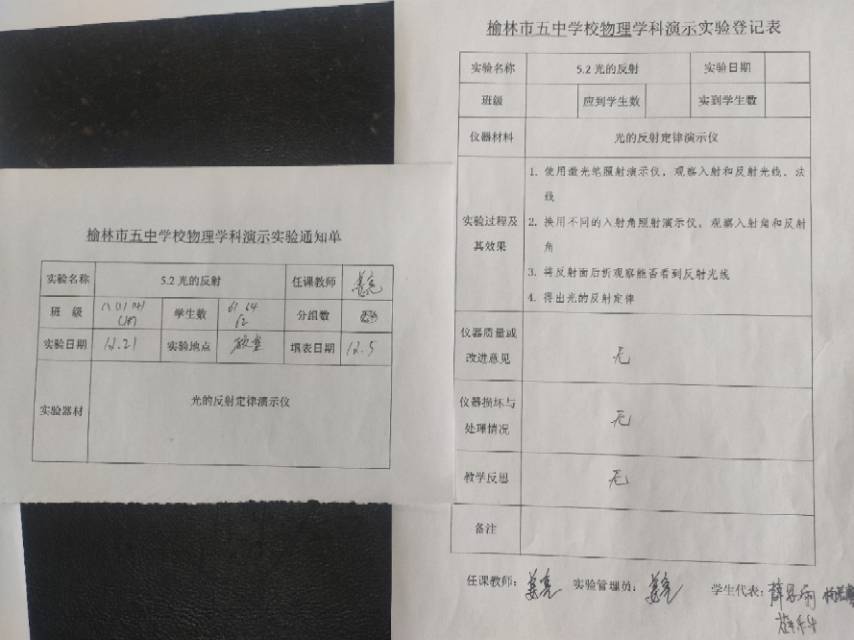 榆林市五中学校物理学科演示实验通知单
实验名称 5.2光的反射 任课教师 姜亮
班 级 学生数 61 64 分组数
62
实验日期 12.21 实验地点 教室 填表日期 12.5
实验器材 光的反射定律演示仪
榆林市五中学校物理学科演示实验登记表
实验名称 5.2光的反射 实验日期
班级 应到学生数 实到学生数
仪器材料 光的反射定律演示仪
实验过程及其效果
1. 使用激光笔照射演示仪，观察入射和反射光线、法
线
2. 换用不同的入射角照射演示仪，观察入射角和反射
角
3. 将反射面后折观察能否看到反射光线
4. 得出光的反射定律
仪器质量或
改进意见 无
仪器损坏与
处理情况 无
教学反思 无
备注
任课教师：姜亮 实验管理员：姜亮 学生代表：